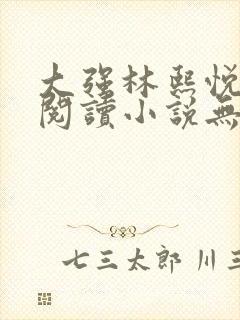 大强林熙悦
閱讀小説無
七三太郎 川三